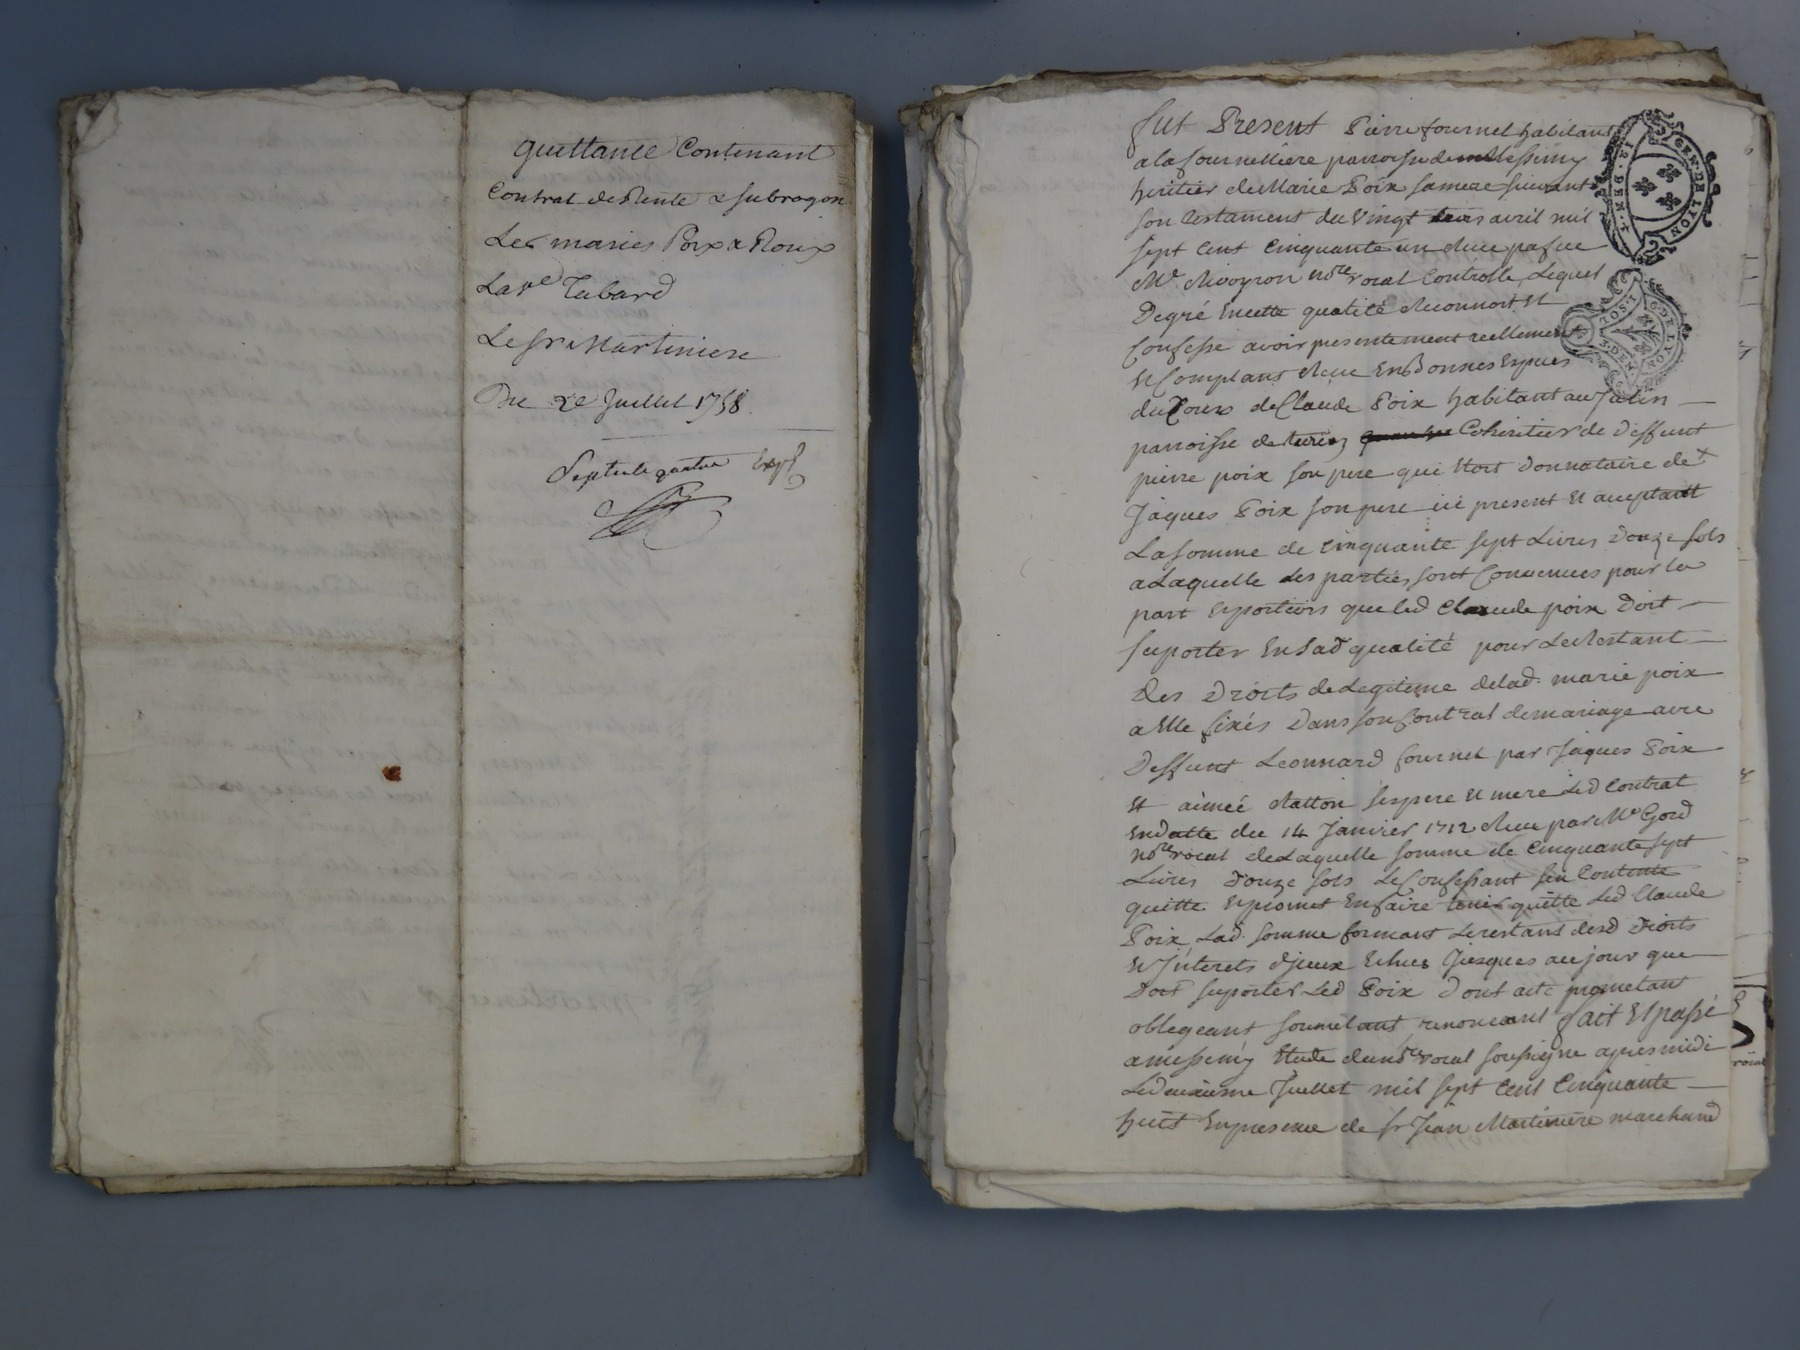 quittance Contenant
Contrat de Rente & subrogon
Les maries Poix & Roux
La ve Tabard
Le sr Martiniere
Du 2e Juillet 1758.
Septente quatre Exp
fut Present Pierre fournel habitant
a la fournelliere parroisse de messimy
heritier de Marie Poix sa mere suivant
son testament du vingt trois avril mil
sept cent cinquante un Recu par feu
Me Mivoyron nore roial Controllé, Lequel
De gré En cette qualité Reconnoit Et
Confesse avoir presentement reellement
Et Comptant Receu En Bonnes Especes
du Cours de Claude Poix habitant au
parroisse de Coheritier de Deffunt
pierre poix son pere qui Etoit Donnataire de
Jaques Poix son pere ici present Et acceptant
La somme de cinquante sept Livres Douze sols
a Laquelle Les parties sont Convenues pour la
part Et portions que led Claude poix Doit
suporter En sad qualité pour Le Restant
Des Droits de Legitime de lad. marie poix
a Elle fixés Dans son Contrat de mariage avec
Deffunt Leonnard fournel par Jaques Poix
Et aimeé Matton ses pere Et mere Led Contrat
En datte du 14 Janvier 1712 Recu par Me Gord
nore roial de Laquelle somme de Cinquante sept
Livres Douze sols Le Confessant sen Contente
quitte Et promet En faire tenir quitte Led Claude
Poix Lad. somme formant Le restant desd Droits
Et Interets d'jceux Echus Jusques au jour que
Doit suporter Led Poix Dont acte prometant
obligeant soumetant renoncant fait Et passé
a messimy Etude du nore roial soussigne apres midi
Le deuxieme Juillet mil sept Cent Cinquante
huit En presence de sr Jean Martiniere marchand
GEN. DE LYON
G. DE LYON
roial